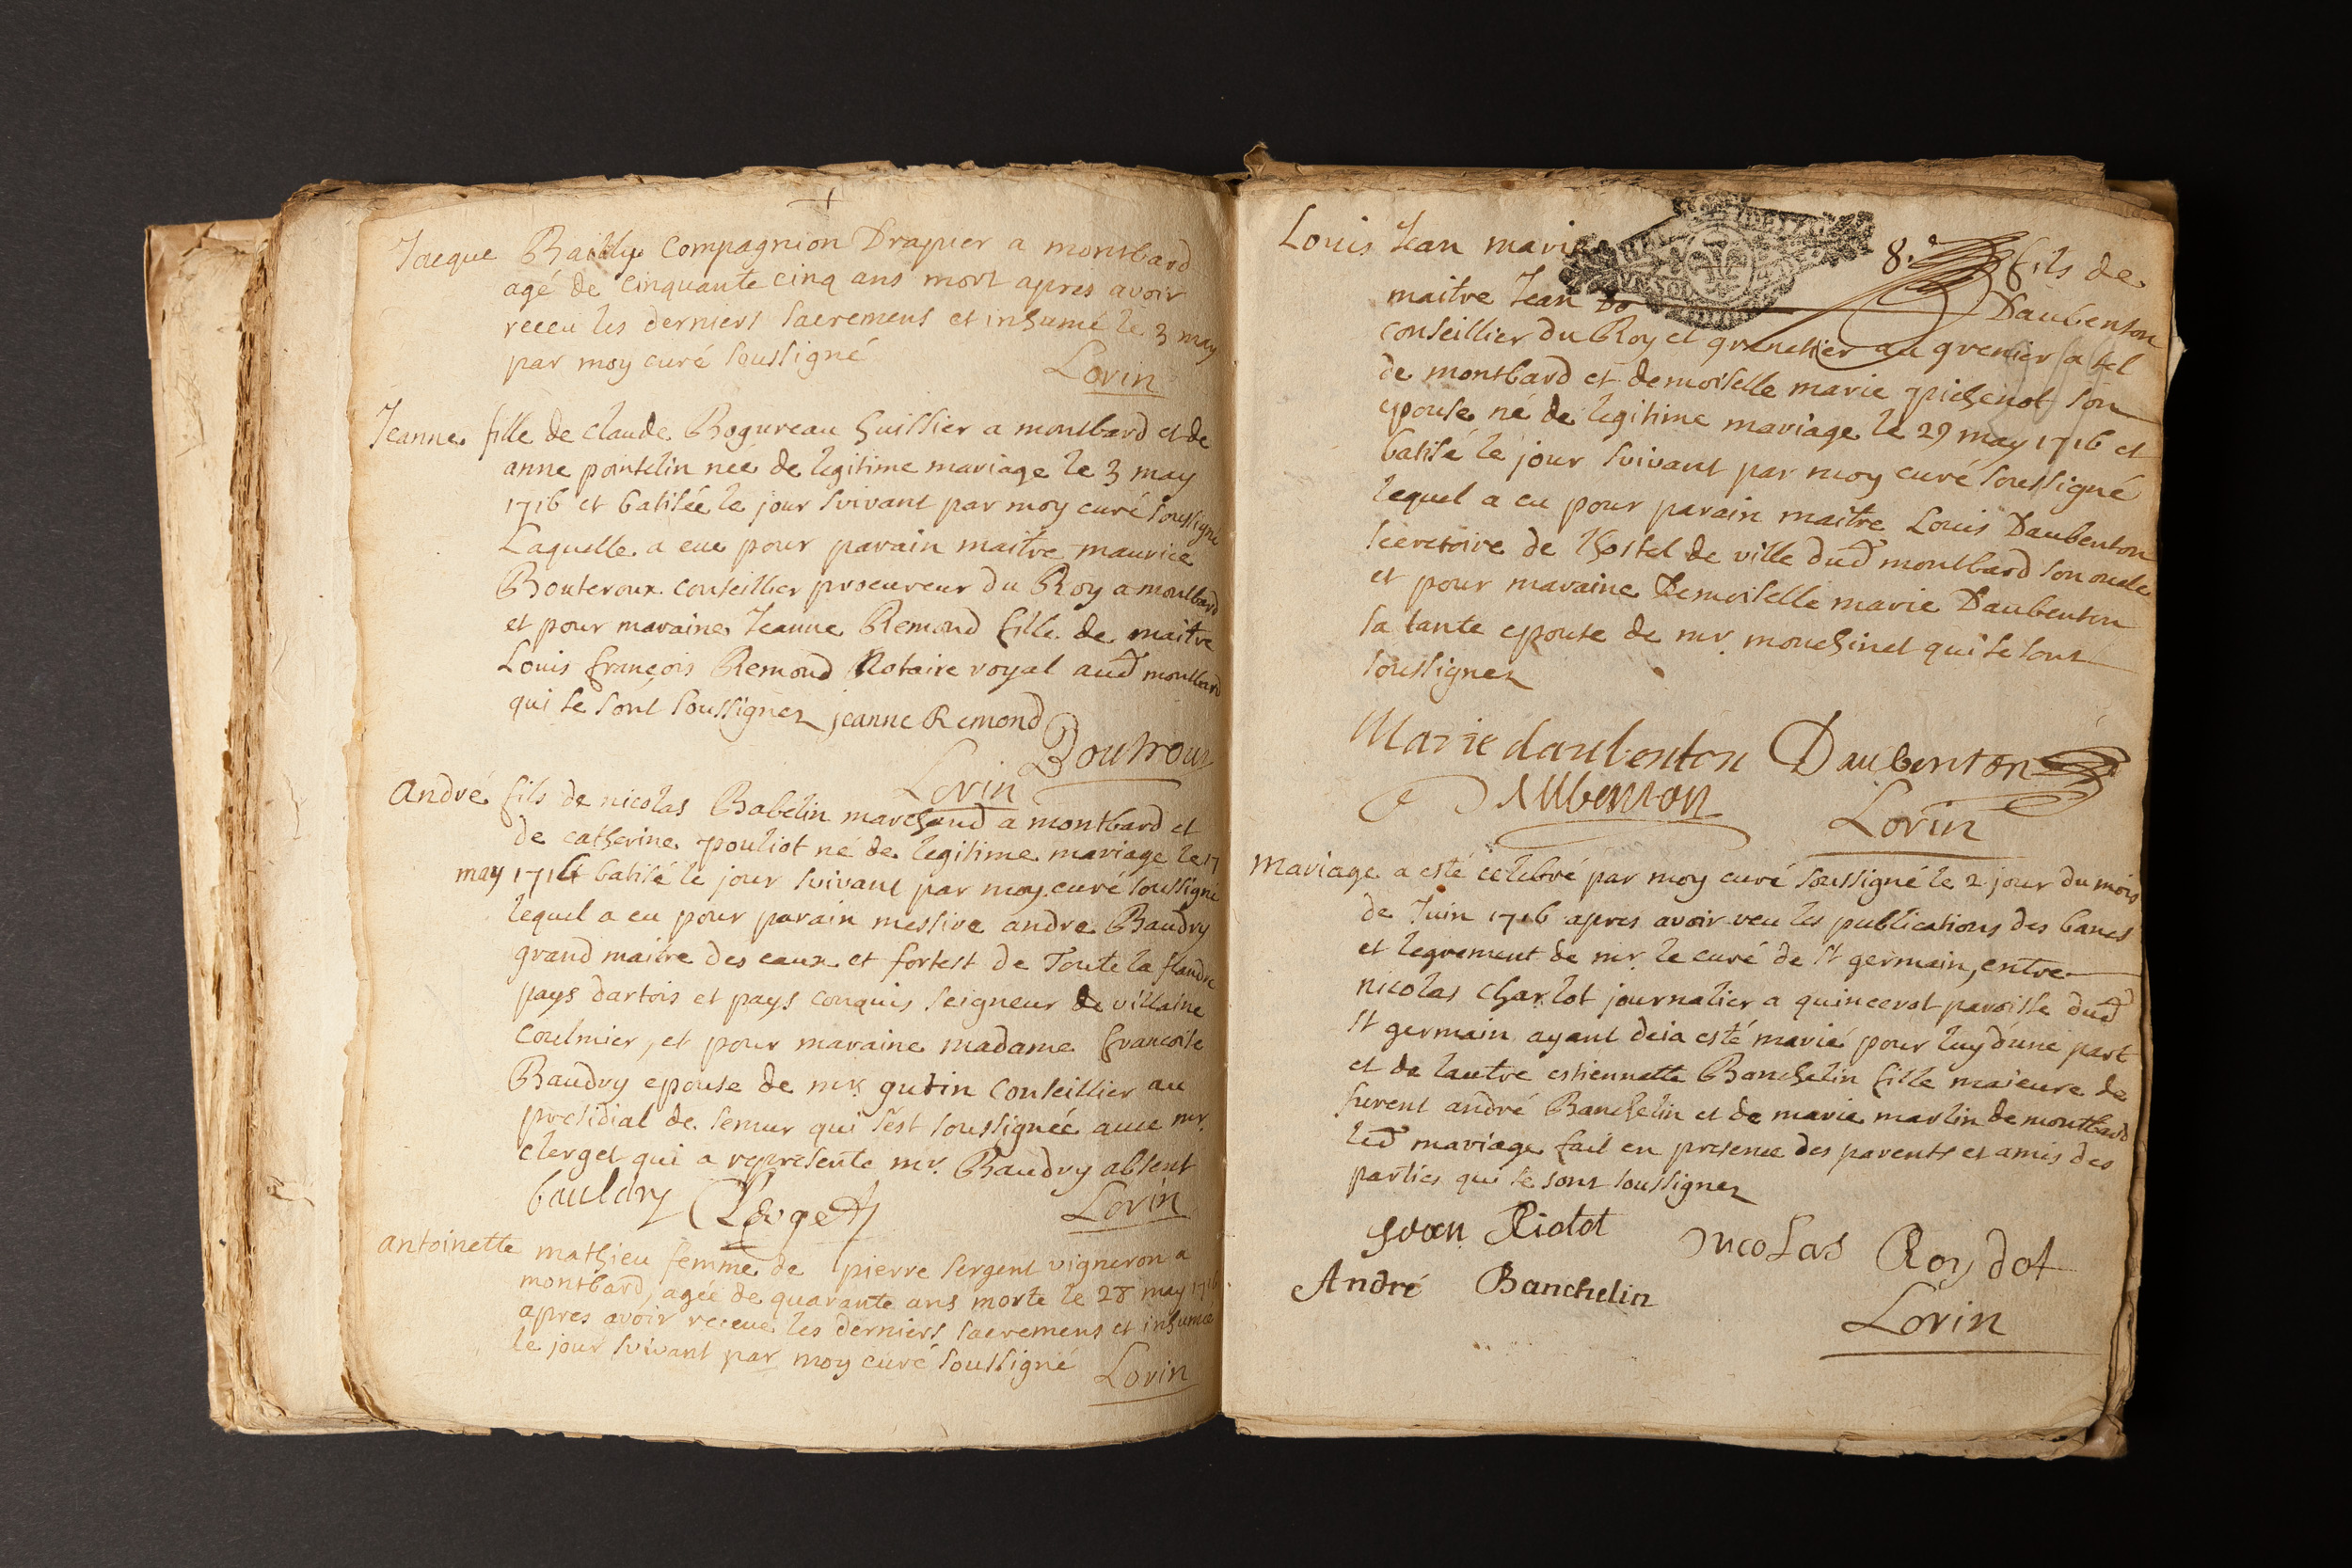 Jacque Bailly Compagnion Drapier a montbard
agé de cinquante cinq ans mort apres avoir
receu les derniers sacremens et inhumé le 3 may
par moy curé soussigné
Lorin
Jeanne fille de claude Bogureau huissier a montbard et de
anne pointelin nee de legitime mariage le 3 may
1716 et batisée le jour suivant par moy curé soussigné
Laquelle a eue pour parain maitre maurice
Bouteroux conseillier procureur du Roy a montbard
et pour maraine Jeanne Remond fille de maitre
Louis françois Remond Notaire royal aud montbard
qui se sont soussignez jeanne Remond
Boutroux
Lorin
André fils de nicolas Babelin marchand a montbard et
de catherine pouliot né de legitime mariage le 17
may 1716 batisé le jour suivant par moy curé soussigné
lequel a eu pour parain messire andre Baudry
grand maitre des eaux et forest de Toute la flandre
pays dartois et pays conquis seigneur de villaine
coulmier, et pour maraine madame francoise
Baudry epouse de mr gutin conseillier au
presidial de semur qui s'est soussignée avec mr.
clerget qui a representé mr. Baudry absent
bauldry Clerget
Lorin
antoinette mathieu femme de pierre sergent vigneron a
montbard, agée de quarante ans morte le 28 may 1716
apres avoir receue les derniers sacremens et inhumée
le jour suivant par moy curé soussigné
Lorin
Louis Jean marie 8. fils de
maitre Jean Daubenton
conseillier du Roy et grenetier au grenier a sel
de montbard et demoiselle marie pichenot son
epouse né de legitime mariage le 29 may 1716 et
batisé le jour suivant par moy curé soussigné
lequel a eu pour parain maitre Louis Daubenton
secretaire de lhostel de ville dud montbard son oncle
et pour maraine Demoiselle marie Daubenton
sa tante epouse de mr. mouchinet qui se sont
soussignez
Marie daubenton Daubenton
Daubenton
Lorin
Mariage a esté celebré par moy curé soussigné le 2 jour du mois
de Juin 1716 apres avoir veu les publications des bancs
et legrement de mr. le curé de st germain, entre
nicolas charlot journalier a quincerot paroisse dud
st germain ayant deia esté marié pour luy d'une part
et de lautre estiennette Banchelin fille maieure de
furent andré Banchelin et de marie martin de montbard
led mariage fait en presence des parents et amis des
parties qui se sont soussignez
Riotot nicolas Roydot
André Banchelin
Lorin